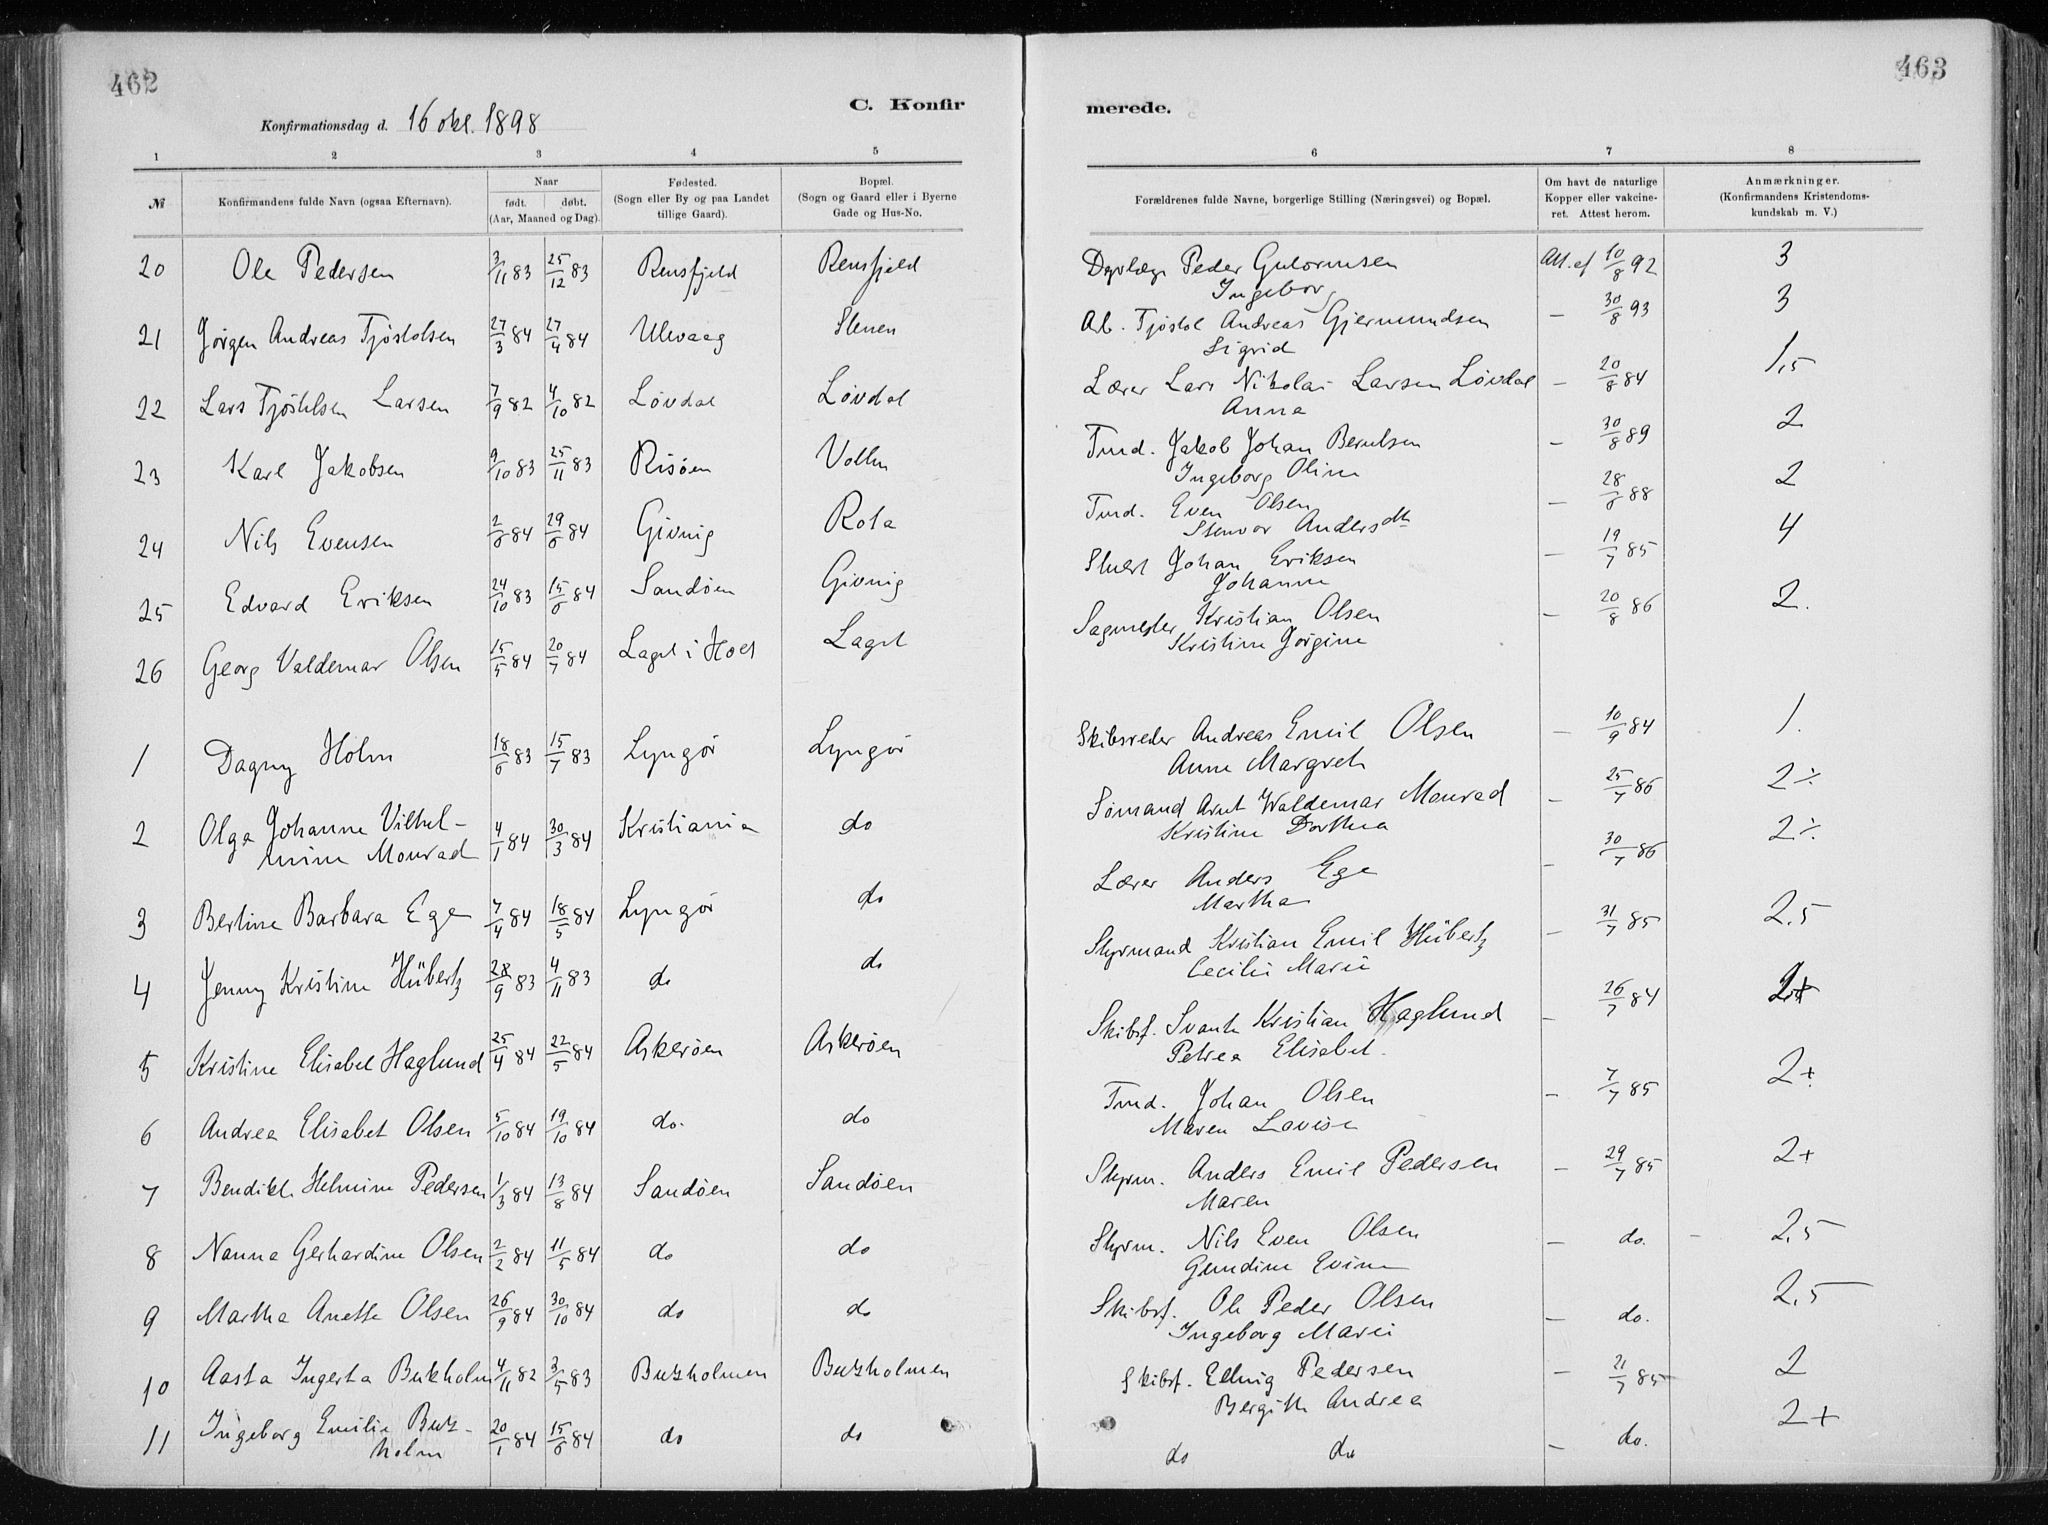 462
463
C. Konfirmerede.
Konfirmationsdag d. 16 okt. 1898
1 2 3 4 5 6 7 8
№
Konfirmandens fulde Navn (ogsaa Efternavn).
Naar
født. døbt.
(Aar, Maaned og Dag).
Fødested.
(Sogn eller By og paa Landet
tillige Gaard).
Bopæl.
(Sogn og Gaard eller i Byerne
Gade og Hus-No.
Forældrenes fulde Navne, borgerlige Stilling (Næringsvei) og Bopæl.
Om havt de naturlige
Kopper eller vakcine-
ret. Attest herom.
Anmærkninger.
(Konfirmandens Kristendoms-
kundskab m. V.)
20 Ole Pedersen 3/11 83 25/12 83 Rensfjeld Rensfjeld Peder Gulormsen Att. af 10/8 92 3
Ingeborg
21 Jørgen Andreas Tjøstolsen 27/3 84 27/4 84 Ulevaag Stenen Arb. Tjøstol Andreas Gjermundsen – 30/8 93 3
Sigrid
22 Lars Tjøstelsen Larsen 7/9 82 4/10 82 Løvdal Løvdal Lærer Lars Nikolai Larsen Løvdal – 20/8 84 1,5
Anna
23 Karl Jakobsen 9/10 83 25/11 83 Risøen Vollen Tmd. Jakob Johan Berulsen – 30/8 89 2
Ingeborg Oline
24 Nils Evensen 2/6 84 29/6 84 Givnig Rota Tmd. Even Olsen – 28/6 88 2
Stenvor Andersdtr
25 Edvard Eriksen 24/10 83 15/6 84 Sandøen Givnig Johan Eriksen – 19/7 85 4
Johanne
26 Georg Valdemar Olsen 15/5 84 20/7 84 Laget i Holt Laget Sagmester Kristian Olsen – 20/8 86 2.
Kristine Jørgine
1 Dagny Holm 18/6 83 15/7 83 Lyngør Lyngør Skibsreder Andreas Emil Olsen – 10/9 84 1.
Anne Margreth
2 Olga Johanne Vilhel-
mine Monrad 4/1 84 30/3 84 Kristiania do Sømand Arnt Waldemar Monrad – 25/7 86 2÷
Kristine Dorthea
3 Bertine Barbara Ege 7/4 84 18/5 84 Lyngør do Lærer Anders Ege – 30/7 86 2÷
Martha
4 Jenny Kristine Hübertz 28/9 83 4/11 83 do do Styrmand Kristian Emil Hübertz – 31/7 85 2.5
Cecilie Marie
5 Kristine Elisabet Haglund 25/4 84 22/5 84 Askerøen Askerøen Skibsf. Svante Kristian Haglund – 26/7 84 2+
Petrea Elisabet.
6 Andrea Elisabet Olsen 5/10 84 19/10 84 do. do Tmd. Johan Olsen – 7/7 85 2+
Maren Lovise
7 Bendikte Helmine Pedersen 1/3 84 13/8 84 Sandøen Sandøen Styrm. Anders Emil Pedersen – 29/7 85 2+
Maren
8 Nanna Gerhardine Olsen 2/2 84 11/5 84 do do Styrm. Nils Even Olsen – do. – 2,5
Gundine Evine
9 Martha Anette Olsen 26/9 84 30/10 84 do do Skibsf. Ole Peder Olsen – do. 2,5
Ingeborg Marie
10 Aasta Ingerta Bukholm 4/11 82 3/5 83 Buxholmen Buxholmen Skibsf. Edvig Pedersen – 21/7 85 2
Bergithe Andrea
11 Ingeborg Emilie Bux-
holm 20/1 84 15/6 84 do do do do – do. 2+